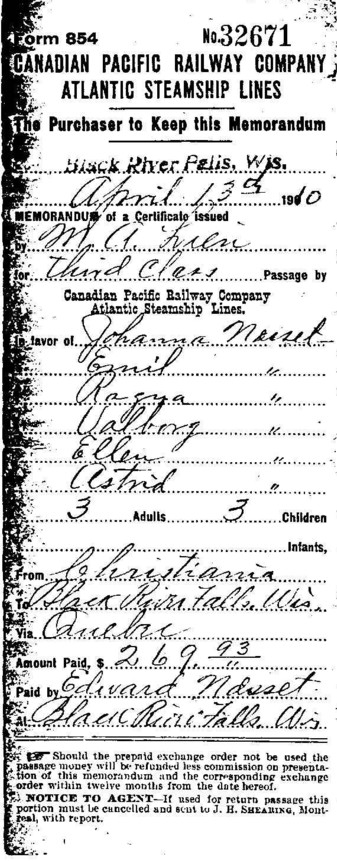 Form 854 No. 32671
CANADIAN PACIFIC RAILWAY COMPANY
ATLANTIC STEAMSHIP LINES
The Purchaser to Keep this Memorandum
Black River Falls, Wis.
April 13th 1910
MEMORANDUM of a Certificate issued
by M. A. Lien
for Third Class Passage by
Canadian Pacific Railway Company
Atlantic Steamship Lines.
In favor of Johanna Nasset
Emil "
Ragna "
Valborg "
Ellen "
Astrid "
3 Adults 3 Children
Infants,
From Christiania
To Black River Falls, Wis.
Via Quebec
Amount Paid, $ 269.93
Paid by Edward Nasset
At Black River Falls, Wis
☞ Should the prepaid exchange order not be used the
passage money will be refunded less commission on presenta-
tion of this memorandum and the corresponding exchange
order within twelve months from the date hereof.
NOTICE TO AGENT—If used for return passage this
portion must be cancelled and sent to J. H. SHEARING, Mont-
real, with report.